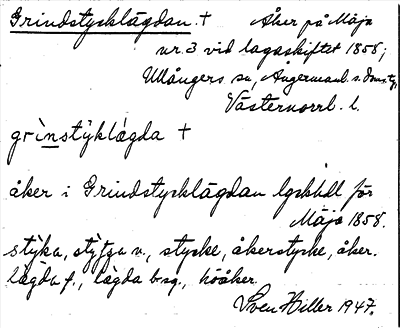 Grindstycklägdan. + Åker på Mäja
nr. 3 vid lagaskiftet 1858;
Ullångers sn, Ångermanl. s. doms.,
Västernorrl. l.
grìnstýklàgda +
åker i Grindstycklägdan lgskhdl för
Mäja 1858.
stýka, n., stycke, åkerstycke, åker.
làgda f., làgda b. sg., höåker.
Sven Hiller 1947.